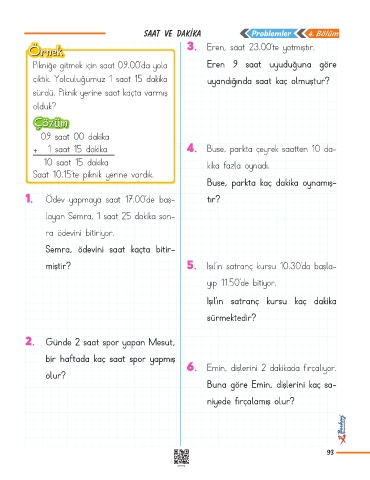 SAAT VE DAKİKA
Problemler
4. Bölüm
Örnek
Pikniğe gitmek için saat 09.00'da yola
çıktık. Yolculuğumuz 1 saat 15 dakika
sürdü. Piknik yerine saat kaçta varmış
olduk?
Çözüm
09 saat 00 dakika
+ 1 saat 15 dakika
10 saat 15 dakika
Saat 10.15'te piknik yerine vardık.
1. Ödev yapmaya saat 17.00'de baş-
layan Semra, 1 saat 25 dakika son-
ra ödevini bitiriyor.
Semra, ödevini saat kaçta bitir-
miştir?
2. Günde 2 saat spor yapan Mesut,
bir haftada kaç saat spor yapmış
olur?
3. Eren, saat 23.00'te yatmıştır.
Eren 9 saat uyuduğuna göre
uyandığında saat kaç olmuştur?
4. Buse, parkta çeyrek saatten 10 da-
kika fazla oynadı.
Buse, parkta kaç dakika oynamış-
tır?
5. Işıl'ın satranç kursu 10.30'da başla-
yıp 11.50'de bitiyor.
Işıl'ın satranç kursu kaç dakika
sürmektedir?
6. Emin, dişlerini 2 dakikada fırçalıyor.
Buna göre Emin, dişlerini kaç sa-
niyede fırçalamış olur?
93